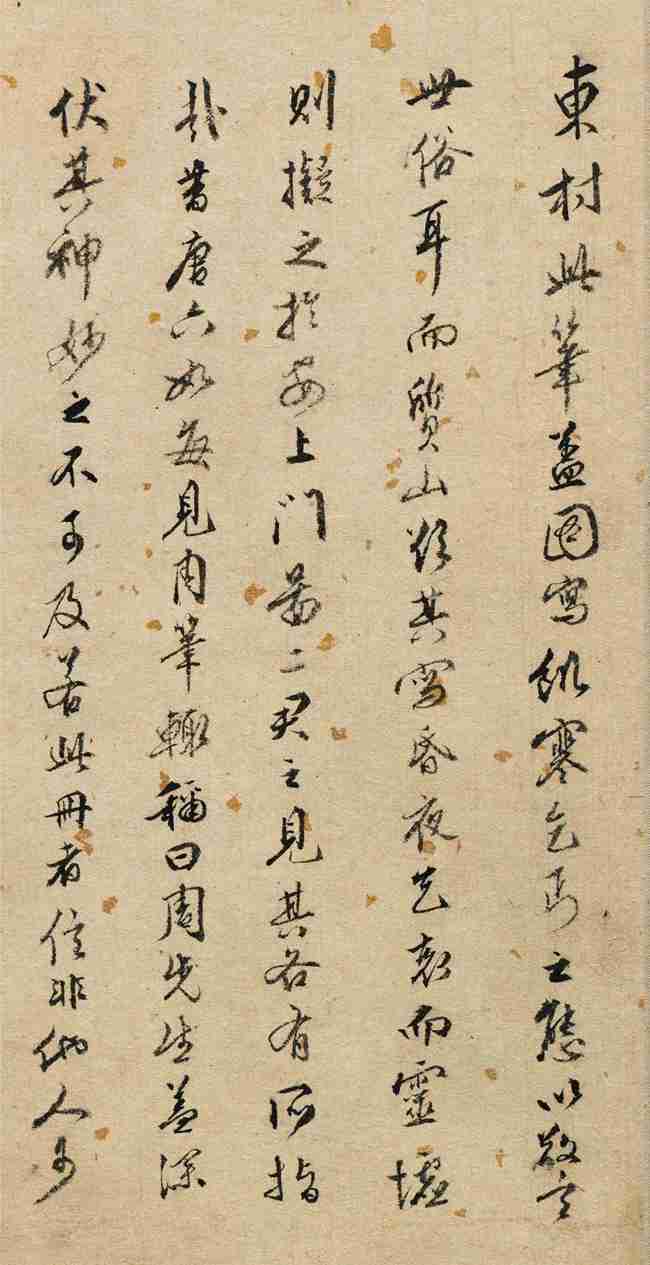 東村此筆蓋圖寫飢寒乞丐之態以警
世俗耳而質山疑其寫昏夜乞哀而靈墟
則擬之於安上門圖二君之見其各有所指
哉昔唐六如每見周筆輒稱曰周先生蓋深
伏其神妙之不可及若此冊者信非他人可